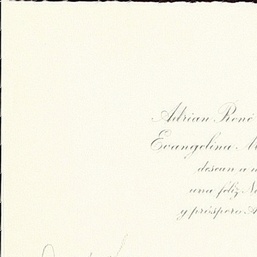 Adrian René
Evangelina M
desean a
una feliz N
y próspero A